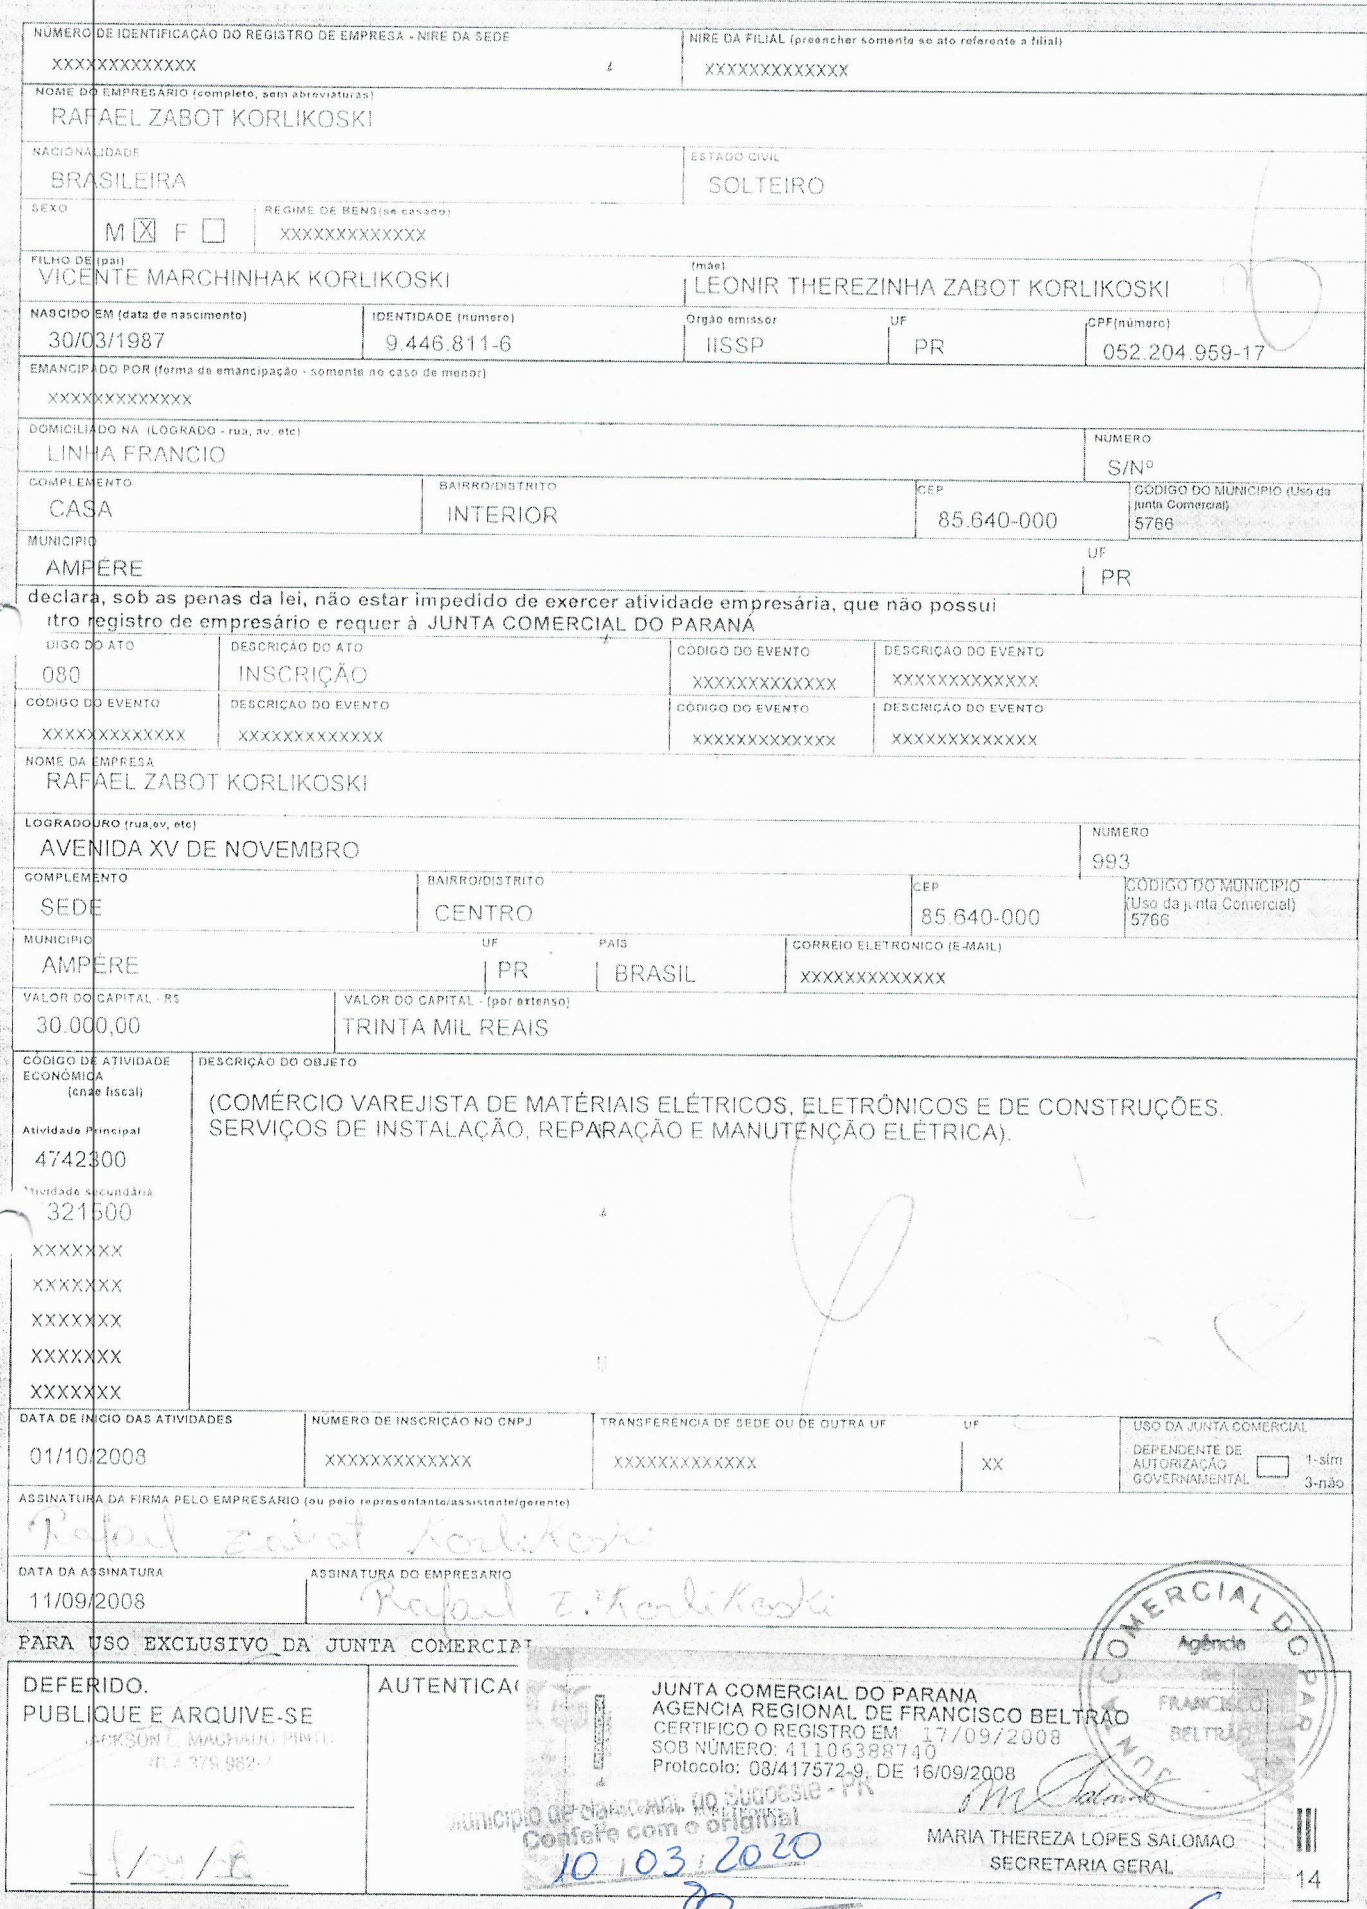 NÚMERO DE IDENTIFICAÇÃO DO REGISTRO DE EMPRESA - NIRE DA SEDE
XXXXXXXXXXXXX
NIRE DA FILIAL (preencher somente se ato referente a filial)
XXXXXXXXXXXXX
NOME DO EMPRESÁRIO (completo, sem abreviaturas)
RAFAEL ZABOT KORLIKOSKI
NACIONALIDADE
BRASILEIRA
ESTADO CIVIL
SOLTEIRO
SEXO
M X F
REGIME DE BENS(se casado)
XXXXXXXXXXXXX
FILHO DE (pai)
VICENTE MARCHINHAK KORLIKOSKI
(mãe)
LEONIR THEREZINHA ZABOT KORLIKOSKI
NASCIDO EM (data de nascimento)
30/03/1987
IDENTIDADE (número)
9.446.811-6
Orgão emissor
IISSP
UF
PR
CPF(número)
052.204.959-17
EMANCIPADO POR (forma de emancipação - somente no caso de menor)
XXXXXXXXXXXXX
DOMICILIADO NA (LOGRADO - rua, av, etc)
LINHA FRANCIO
NÚMERO
S/Nº
COMPLEMENTO
CASA
BAIRRO/DISTRITO
INTERIOR
CEP
85.640-000
CÓDIGO DO MUNICIPIO (Uso da
junta Comercial)
5766
MUNICIPIO
AMPÉRE
UF
PR
declara, sob as penas da lei, não estar impedido de exercer atividade empresária, que não possui
itro registro de empresário e requer à JUNTA COMERCIAL DO PARANÁ
DIGO DO ATO
080
DESCRIÇÃO DO ATO
INSCRIÇÃO
CÓDIGO DO EVENTO
XXXXXXXXXXXXX
DESCRIÇÃO DO EVENTO
XXXXXXXXXXXXX
CÓDIGO DO EVENTO
XXXXXXXXXXXXX
DESCRIÇÃO DO EVENTO
XXXXXXXXXXXXX
CÓDIGO DO EVENTO
XXXXXXXXXXXXX
DESCRIÇÃO DO EVENTO
XXXXXXXXXXXXX
NOME DA EMPRESA
RAFAEL ZABOT KORLIKOSKI
LOGRADOURO (rua,av, etc)
AVENIDA XV DE NOVEMBRO
NÚMERO
993
COMPLEMENTO
SEDE
BAIRRO/DISTRITO
CENTRO
CEP
85.640-000
CÓDIGO DO MUNICIPIO
(Uso da junta Comercial)
5766
MUNICIPIO
AMPÉRE
UF
PR
PAIS
BRASIL
CORREIO ELETRONICO (E-MAIL)
XXXXXXXXXXXXX
VALOR DO CAPITAL - R$
30.000,00
VALOR DO CAPITAL - (por extenso)
TRINTA MIL REAIS
CÓDIGO DE ATIVIDADE
ECONÓMICA
(cnae fiscal)
Atividade Principal
4742300
Atividade secundária
321500
XXXXXXX
XXXXXXX
XXXXXXX
XXXXXXX
XXXXXXX
DESCRIÇÃO DO OBJETO
(COMÉRCIO VAREJISTA DE MATÉRIAIS ELÉTRICOS, ELETRÔNICOS E DE CONSTRUÇÕES.
SERVIÇOS DE INSTALAÇÃO, REPARAÇÃO E MANUTENÇÃO ELÉTRICA).
DATA DE INICIO DAS ATIVIDADES
01/10/2008
NÚMERO DE INSCRIÇÃO NO CNPJ
XXXXXXXXXXXXX
TRANSFERÊNCIA DE SEDE OU DE OUTRA UF
XXXXXXXXXXXXX
UF
XX
USO DA JUNTA COMERCIAL
DEPENDENTE DE
AUTORIZAÇÃO
GOVERNAMENTAL
1-sim
3-não
ASSINATURA DA FIRMA PELO EMPRESÁRIO (ou pelo representante/assistente/gerente)
Rafael Zabot Korlikoski
DATA DA ASSINATURA
11/09/2008
ASSINATURA DO EMPRESÁRIO
Rafael Z. Korlikoski
PARA USO EXCLUSIVO DA JUNTA COMERCIAL
DEFERIDO.
PUBLIQUE E ARQUIVE-SE
JACKSON C. MACHADO
AUTENTICAÇ
JUNTA COMERCIAL DO PARANA
AGENCIA REGIONAL DE FRANCISCO BELTRÃO
CERTIFICO O REGISTRO EM: 17/09/2008
SOB NÚMERO: 41106388740
Protocolo: 08/417572-9, DE 16/09/2008
MARIA THEREZA LOPES SALOMAO
SECRETARIA GERAL
JUNTA COMERCIAL DO PAR
Agência
de
FRANCISCO
BELTRÃO
Município de do Sudoeste - PR
Confere com o original
10 / 03 / 2020
14